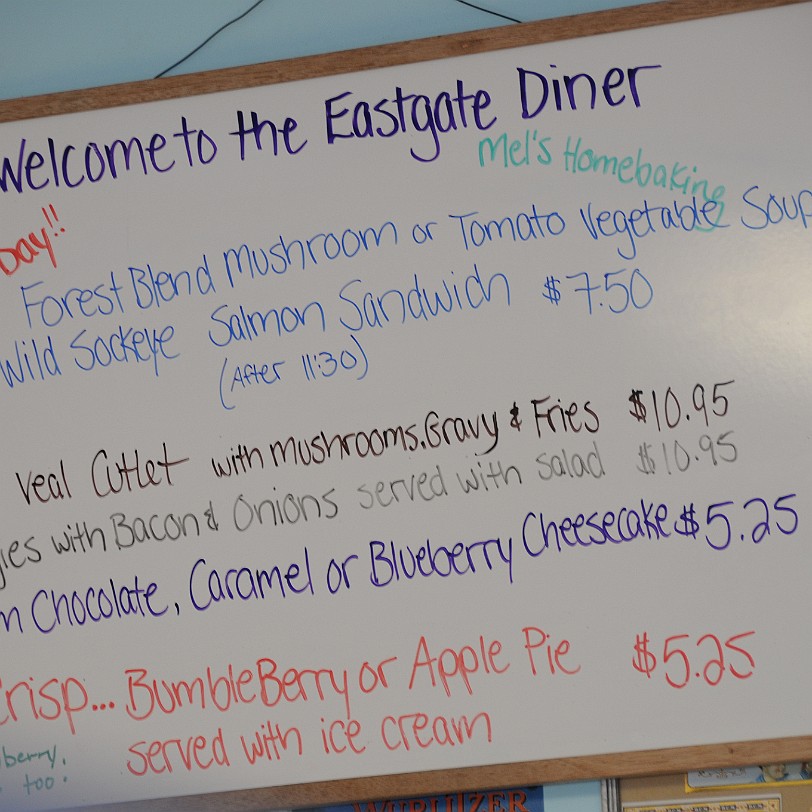 Welcome to the Eastgate Diner
Mel's Homebaking
Day!!
Forest Blend Mushroom or Tomato Vegetable Soup
Wild Sockeye Salmon Sandwich $7.50
(After 11:30)
Veal Cutlet with Mushrooms, Gravy & Fries $10.95
ies with Bacon & Onions served with salad $10.95
m Chocolate, Caramel or Blueberry Cheesecake $5.25
Crisp... BumbleBerry or Apple Pie $5.25
served with ice cream
berry,
too.
WURLITZER